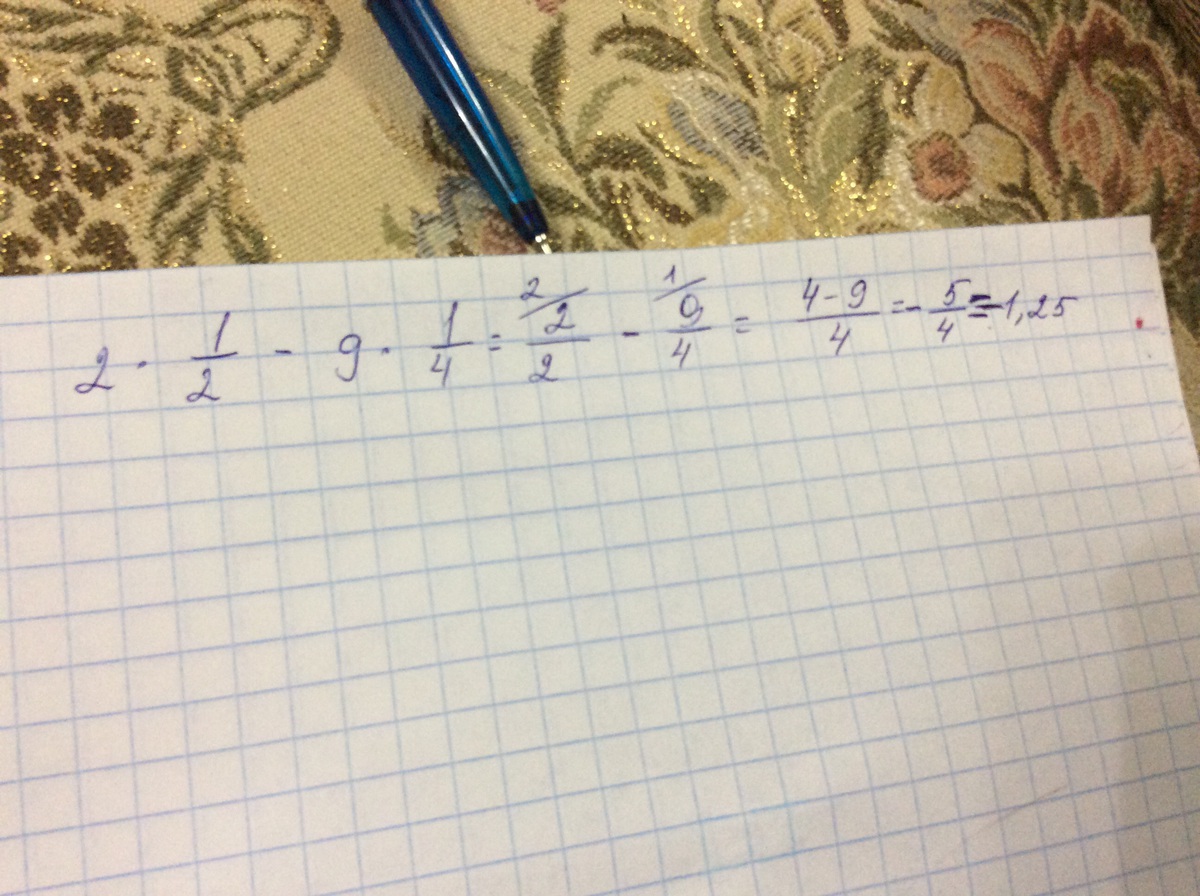 2 · 1/2 - 9 · 1/4 = 2/ 2/2 - 1/ 9/4 = 4-9/4 = - 5/4 = -1,25